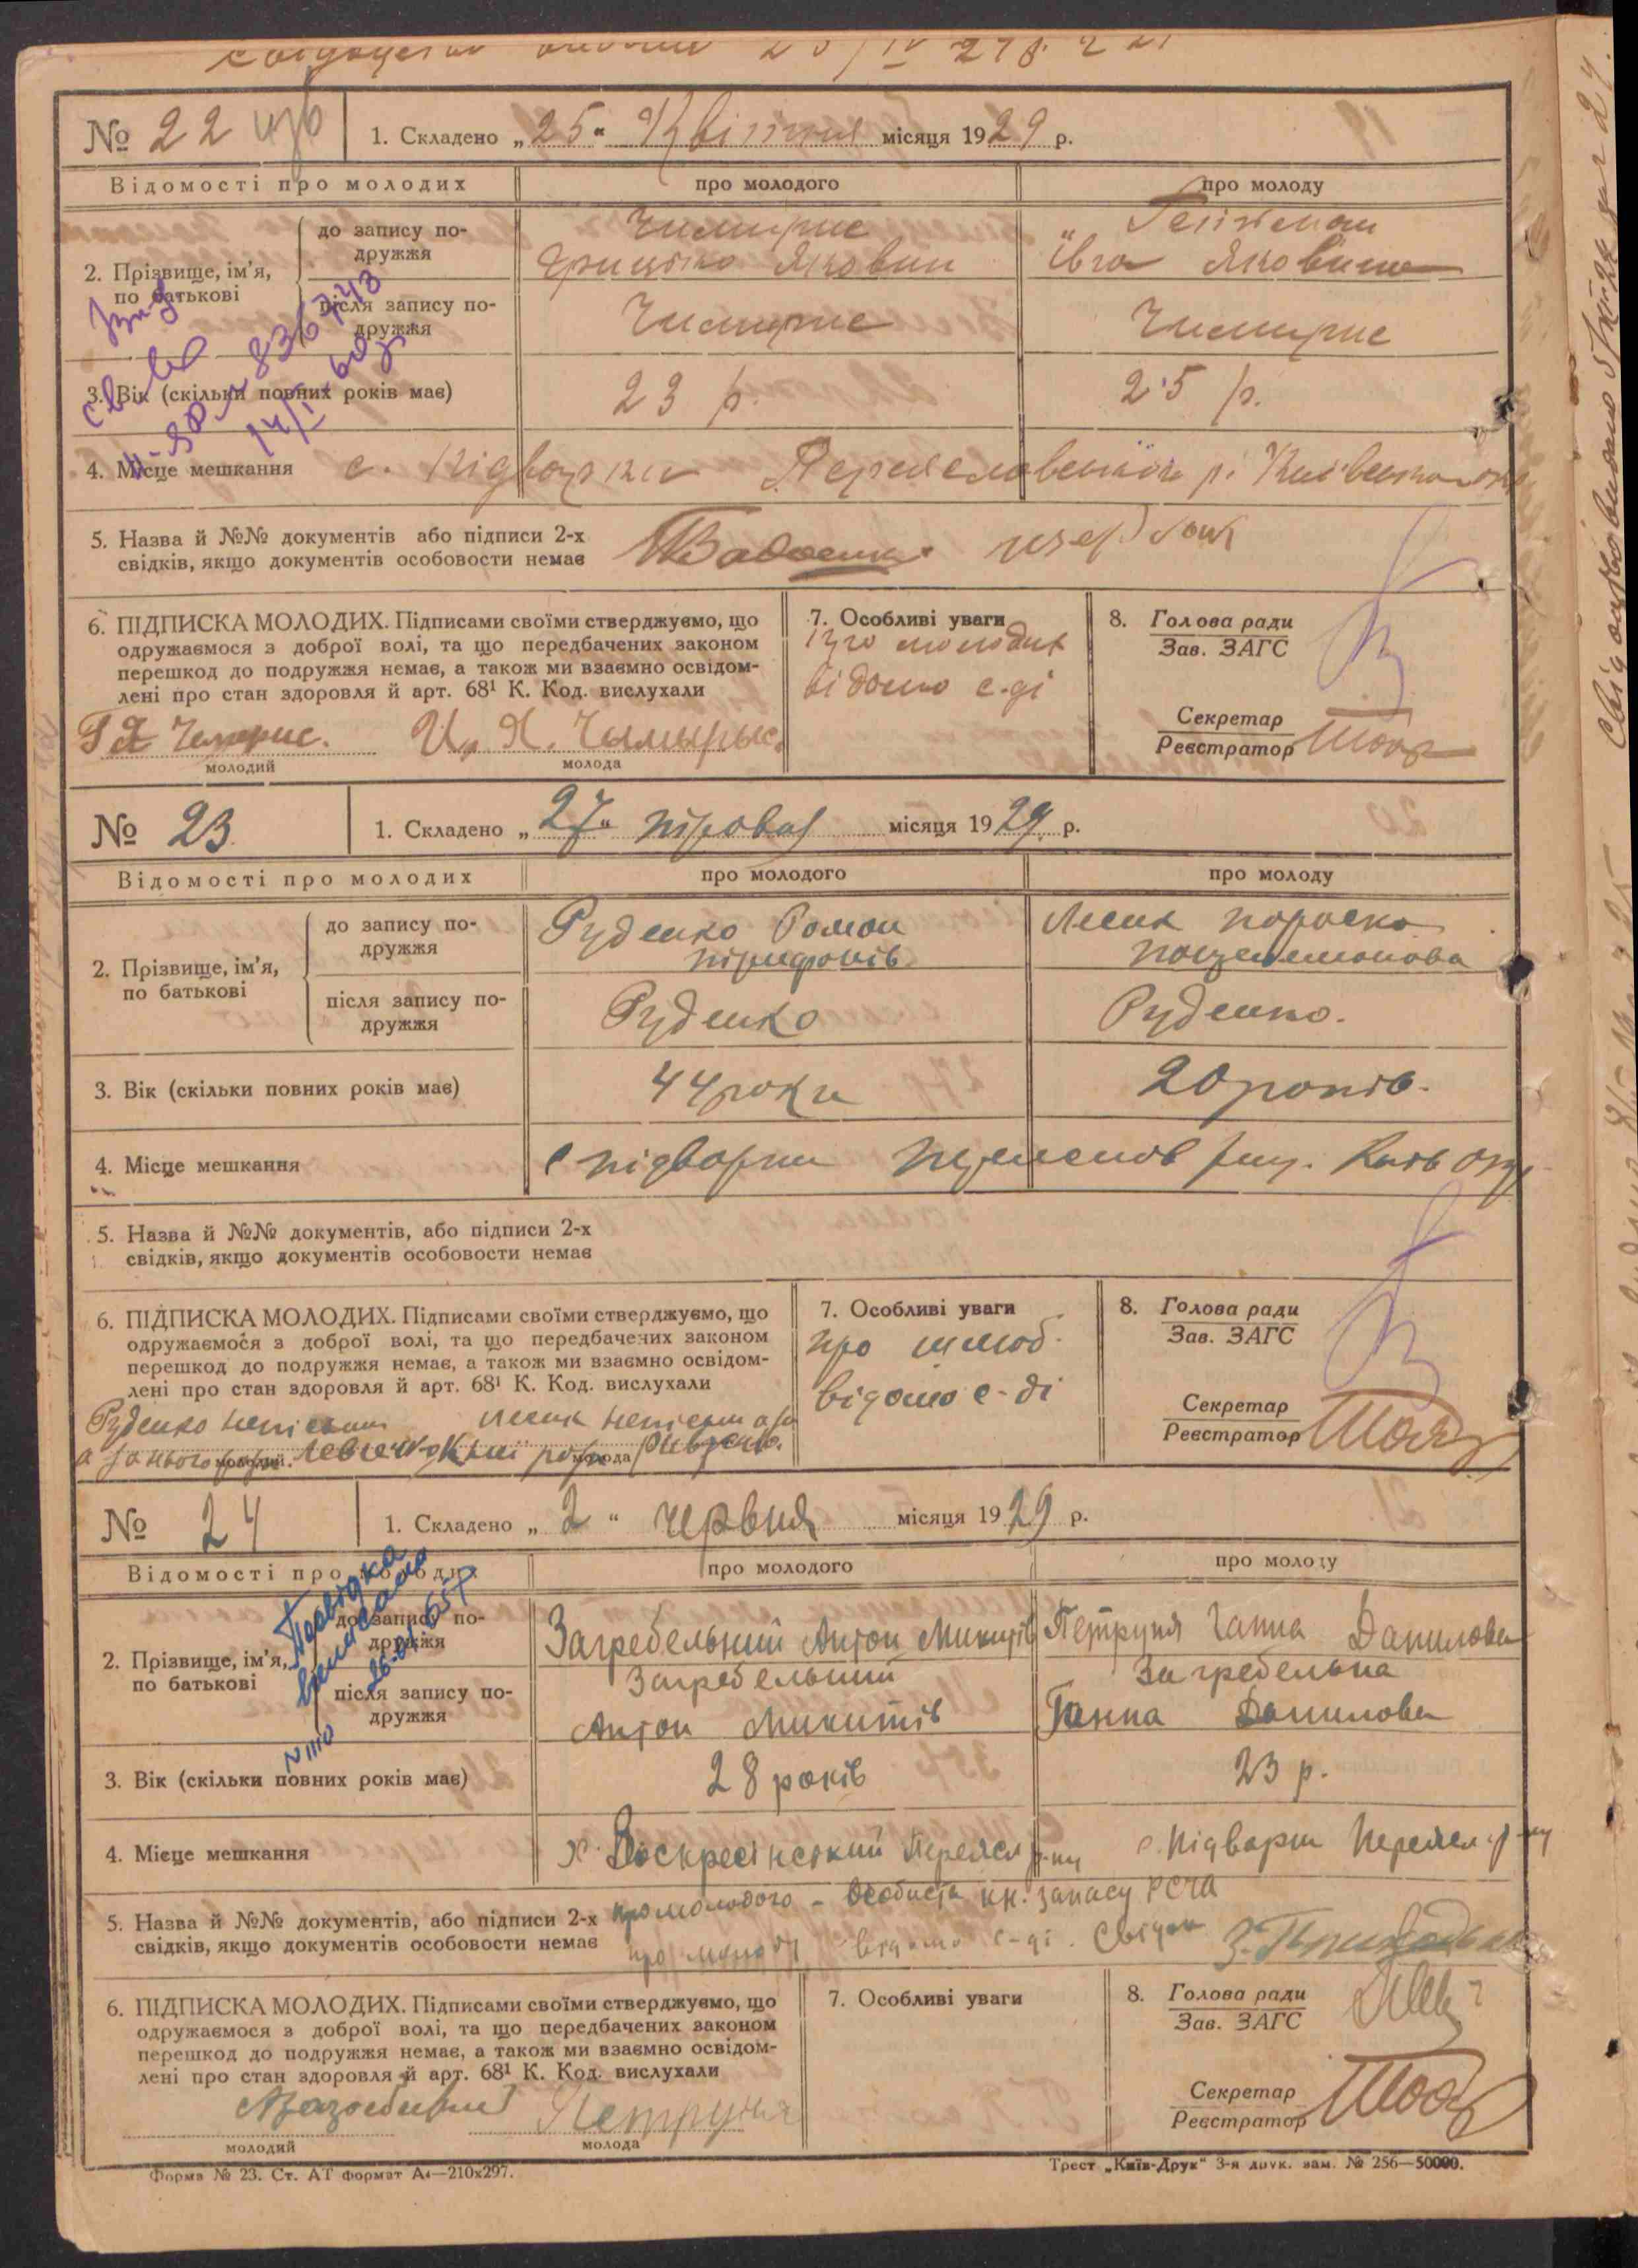 № 22
1. Складено „25“ Квітня місяця 1929 р.
Відомості про молодих
про молодого
про молоду
2. Прізвище, ім’я, по батькові
до запису подружжя
Чимирис
Грицько Якович
Гетьман
Івга Яковина
після запису подружжя
Чимирис
Чимирис
3. Вік (скільки повних років має)
23 р.
25 р.
4. Місце мешкання
с. Підварки Переяславської р. Київської окр.
5. Назва й №№ документів або підписи 2-х
свідків, якщо документів особовости немає
6. ПІДПИСКА МОЛОДИХ. Підписами своїми стверджуємо, що
одружаємося з доброї волі, та що передбачених законом
перешкод до подружжя немає, а також ми взаємно освідом-
лені про стан здоровля й арт. 68¹ К. Код. вислухали
Г Я Чемерис.
И. Я. Чымырыс.
молодий
молода
7. Особливі уваги
молодих
відомо с-ді
8. Голова ради
Зав. ЗАГС
Секретар
Реєстратор
№ 23
1. Складено „27“ травня місяця 1929 р.
Відомості про молодих
про молодого
про молоду
2. Прізвище, ім’я, по батькові
до запису подружжя
Руденко Роман
Трифонів
Лесик Параска
Пантелемонова
після запису подружжя
Руденко
Руденко.
3. Вік (скільки повних років має)
44 роки
20 років.
4. Місце мешкання
с Підварки Переяслов рну. Київ окр
5. Назва й №№ документів, або підписи 2-х
свідків, якщо документів особовости немає
6. ПІДПИСКА МОЛОДИХ. Підписами своїми стверджуємо, що
одружаємося з доброї волі, та що передбачених законом
перешкод до подружжя немає, а також ми взаємно освідом-
лені про стан здоровля й арт. 68¹ К. Код. вислухали
Руденко неписьм
Лесик неписьм а за
а за нього
молодий
молода
7. Особливі уваги
про шлюб
відомо с-ді
8. Голова ради
Зав. ЗАГС
Секретар
Реєстратор
№ 24
1. Складено „2“ червня місяця 1929 р.
Відомості про молодих
про молодого
про молоду
2. Прізвище, ім’я, по батькові
до запису подружжя
Загребельний Антон Микитів
Петруня Ганна Данилова
після запису подружжя
Загребельний
Антон Микитів
Загребельна
Ганна Данилова
3. Вік (скільки повних років має)
28 років
23 р.
4. Місце мешкання
х. Воскресінський Переясл р-ну
с. Підварки Переясл р-ну
5. Назва й №№ документів, або підписи 2-х
свідків, якщо документів особовости немає
про молодого – Особиста кн. запасу РСЧА
про молоду відомо с-ді. Свідок
6. ПІДПИСКА МОЛОДИХ. Підписами своїми стверджуємо, що
одружаємося з доброї волі, та що передбачених законом
перешкод до подружжя немає, а також ми взаємно освідом-
лені про стан здоровля й арт. 68¹ К. Код. вислухали
Петруня
молодий
молода
7. Особливі уваги
8. Голова ради
Зав. ЗАГС
Секретар
Реєстратор
Форма № 23. Ст. АТ формат А4—210x297.
Трест „Київ-Друк“ 3-я друк. зам. № 256—50000.